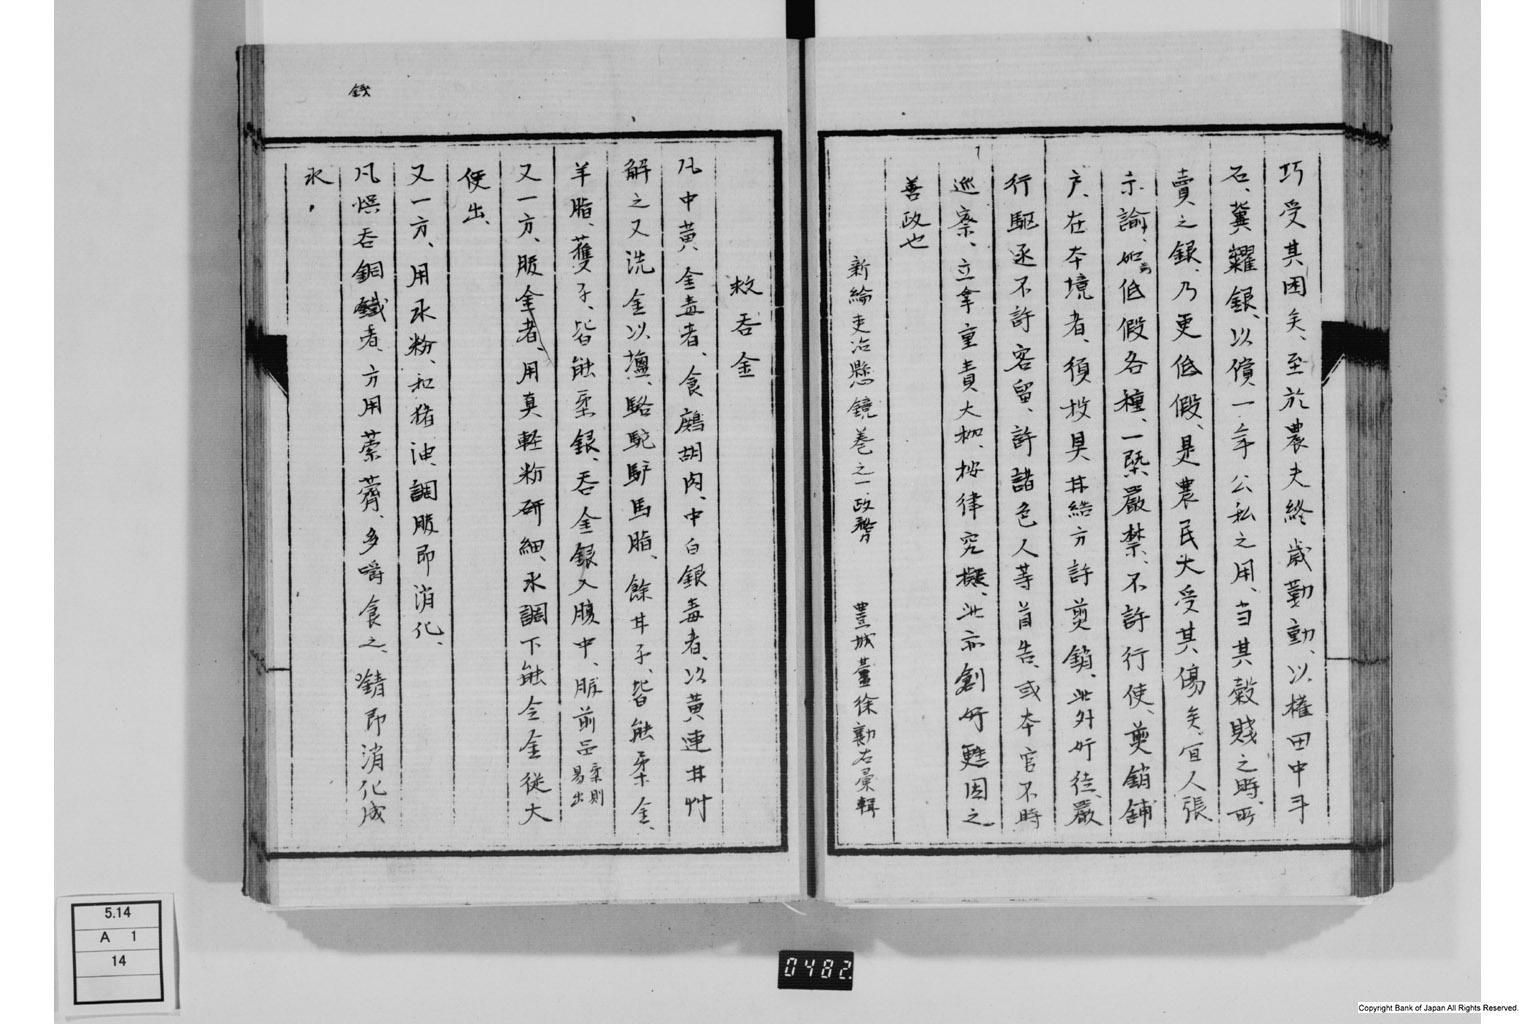 巧受其困矣、至於農夫終歳勤動、以權田中斗
石、冀糶銀、以償一年公私之用、当其穀賤之時、所
賣之銀、乃更低假、是農民大受其傷矣、宜人張
示諭、如有低假各種、一槩嚴禁、不許行使、剪銷舖
户、在本境者、須投具甘結方許剪銷、此外奸徒、嚴
行駆逐不許容留、許諸色人等首告、或本官不時
巡察、立拿重責大枷、按律究擬、此亦剷奸甦困之
善政也
新綸吏治懸鏡巻之一政務 豊城薑徐勷右彙輯
救呑金
凡中黄金毒者、食鷓胡肉、中白銀毒者、以黄連甘艸
解之又洗金以塩、駱駝馿馬脂、餘甘子、皆能柔金、
羊脂、蒦子、皆能柔銀、呑金銀入腹中、服前品柔則易出
又一方、服金者、用真軽粉研細、水調下能令金従大
便出、
又一方、用水粉、和猪油、調服即消化、
銭
凡悞呑銅鐵者、方用荸薺、多嚼食之、錯即消化成
水,
5.14
A 1
14
0482
Copyright Bank of Japan All Rights Reserved.